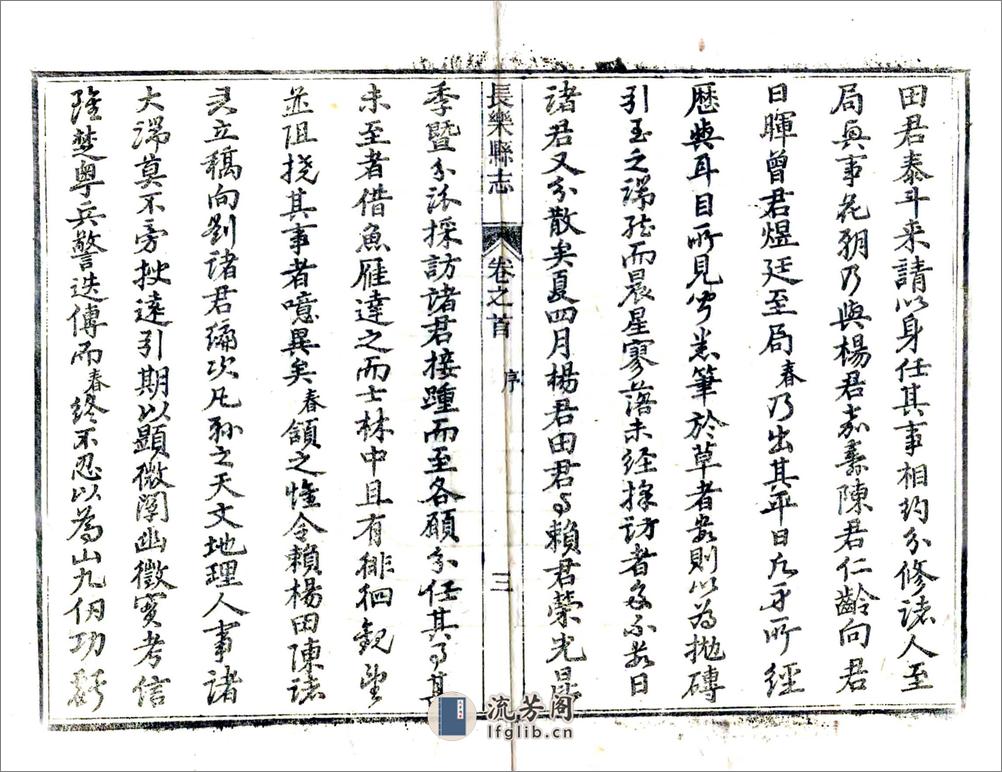 田君泰斗來請以身任其事相約分修諸人至
局與事花朝乃與楊君嘉 陳君仁齡向君
日暉曾君煜廷至局春乃出其平日凡身所經
歷與耳目所見 筆於草者 則以為拋磚
引玉之端 而晨星寥落未經採訪者 不 日
諸君又分散矣夏四月楊君田君 賴君榮光
長樂縣志 卷之首 序 三
季暨分派採訪諸君接踵而至各願分任其 其
未至者借魚雁達之而士林中且有徘徊觀望
並阻撓其事者噫異矣春頷之惟令賴楊田陳諸
君立稿向劉諸君編次凡 之天文地理人事諸
大端莫不旁 遠引期以顯微闡幽徵實考信
楚粵兵警迭傳而春終不忍以為山九仞功虧
流芳阁
lfglib.cn